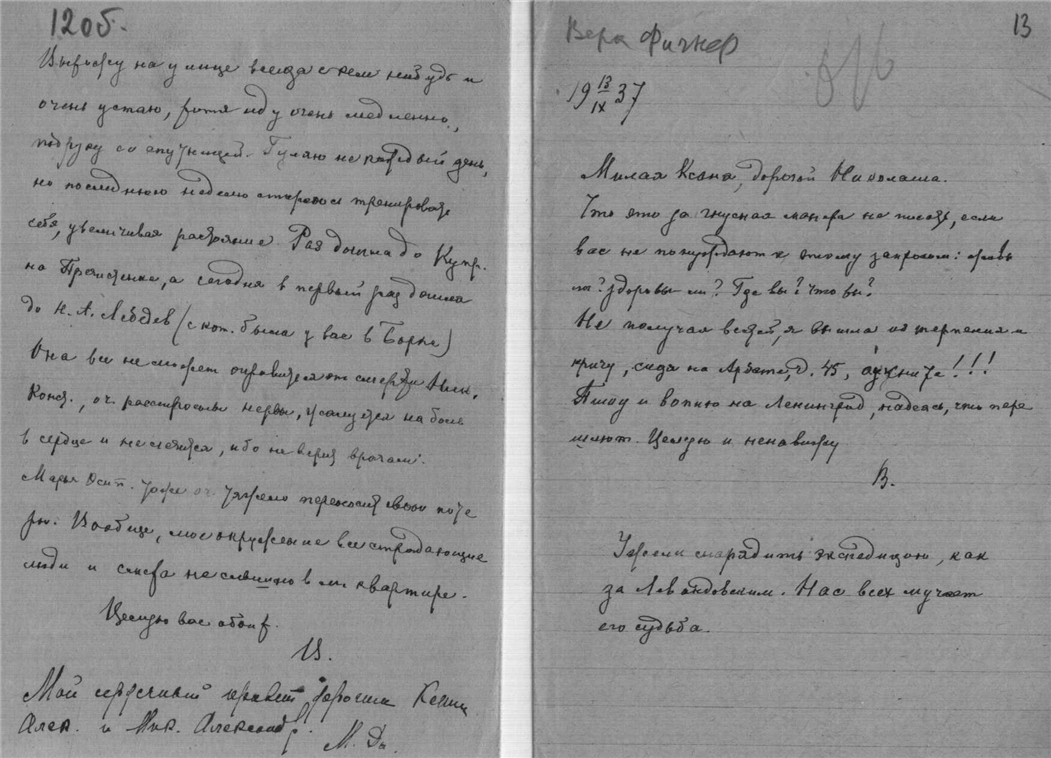 12 об.
Выхожу на улицу всегда с кем нибудь и
очень устаю, хотя иду очень медленно,
под руку со спутницей. Гуляю не каждый день,
но последнюю неделю стараюсь тренировать
себя, увеличивая расстояние. Раз дошла до Купр.
на Пречистенке, а сегодня в первый раз дошла
до К. А. Лебедев (с кот. была у вас в Борке)
Она все не может оправиться от смерти Ник.
Конст., оч. расстроены нервы, жалуется на боль
в сердце и не лечится, ибо не верит врачам.
Марья Осип. тоже оч. тяжело переносит свою поте
рю. Вообще, мое окружение все страдающие
люди и смеха не слышно в м. квартире.
Целую вас обоих.
В.
Мой сердечный привет дорогим Ксении
Алек. и Ник. Александр.
13
Вера Фигнер
19 13/IX 37
Милая Ксана, дорогой Николаша.
Что это за гнусная манера не писать, если
вас не понуждают к этому запросом: живы
ли? здоровы ли? Где вы? что вы?
Не получая вестей, я вышла из терпения и
кричу, сидя на Арбате, д. 45, ау!!!
Пишу и вопию на Ленинград, надеясь, что пере
шлют. Целую и ненавижу
В.
Ужели снарядить экспедицию, как
за Леваневским. Нас всех мучает
его судьба.